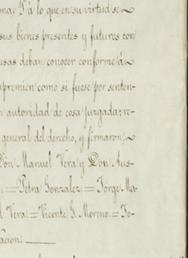 mar Pª á lo que en su virtud se
sus bienes presentes y futuros con
usas deban conocer conforme á
apremien como si fuese por senten-
n autoridad de cosa juzgada; re-
general del derecho, y firmaron;
Don Manuel Vera y Don Aus-
= Petra Gonzalez = Jorge Ma-
l Vera = Vicente S. Moreno = Jo-
lacion: